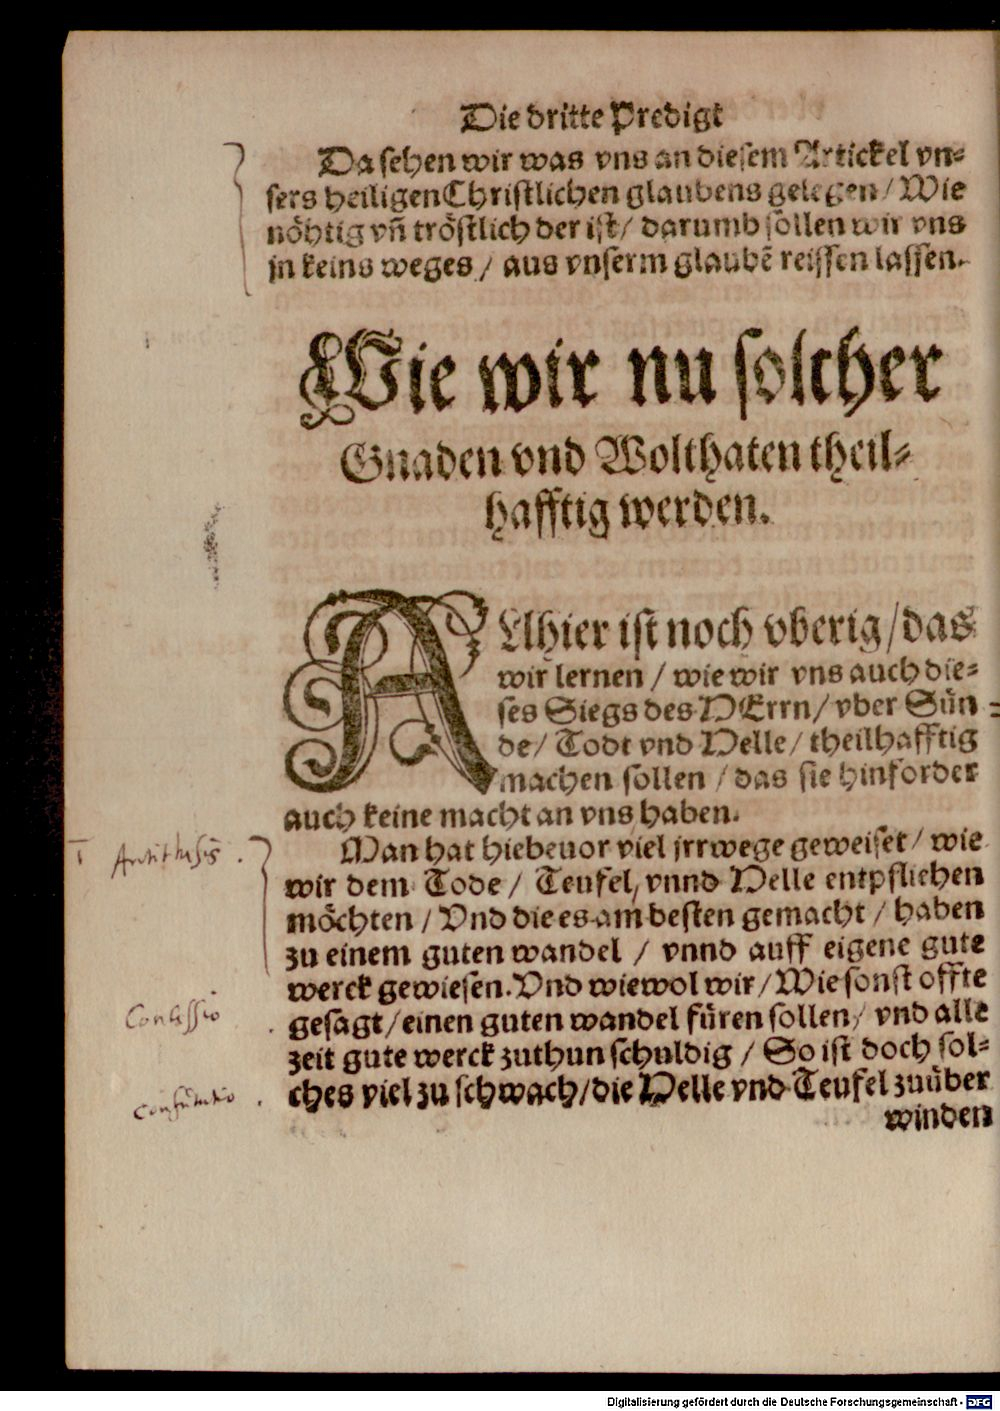 Die dritte Predigt
Da sehen wir was vns an diesem Artickel vn-
sers heiligen Christlichen glaubens gelegen/ Wie
nöhtig vñ tröstlich der ist/ darumb sollen wir vns
in keins weges/ aus vnserm glaubẽ reissen lassen.
Wie wir nu solcher
Gnaden vnd Wolthaten theil-
hafftig werden.
ALhier ist noch vberig/ das
wir lernen / wie wir vns auch die-
ses Siegs des HErrn/ vber Sün-
de/ Todt vnd Helle/ theilhafftig
machen sollen / das sie hinforder
auch keine macht an vns haben.
I Antithesis.
Man hat hiebeuor viel jrrwege geweiset/ wie
wir dem Tode / Teufel, vnnd Helle entpfliehen
möchten / Vnd die es am besten gemacht / haben
zu einem guten wandel / vnnd auff eigene gute
werck gewiesen. Vnd wiewol wir/ Wie sonst offte
Concessio
gesagt/ einen guten wandel füren sollen/ vnd alle
zeit gute werck zuthun schuldig / So ist doch sol-
Confutatio.
ches viel zu schwach/ die Helle vnd Teufel zuüber
winden
Digitalisierung gefördert durch die Deutsche Forschungsgemeinschaft - DFG